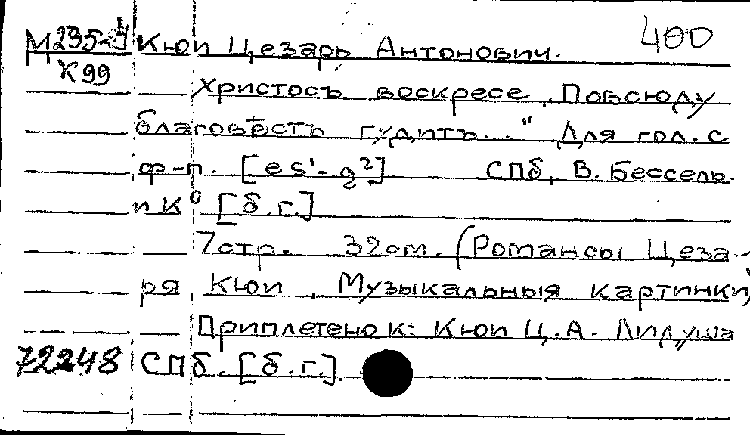 М235-4 Кюи Цезарь Антонович. 400
К99
Христосъ воскресе „Повсюду
благовѣсть гудитъ..." Для гол. с
ф-п. [es¹-g²] СПб, В. Бессель
и К⁰ [б.г.]
7стр. 32см. (Романсы Цеза-
ря Кюи, Музыкальныя картинки)
Приплетено к: Кюи Ц.А. Лидуша
72248 СПб. [б.г.]